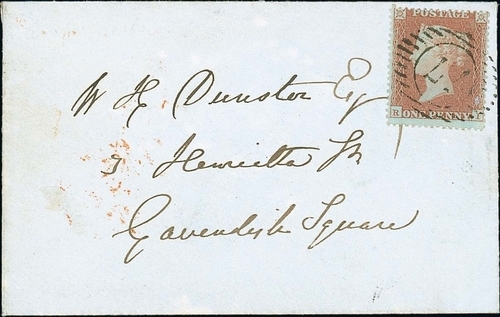 POSTAGE
ONE PENNY
R
W H Dunster Esq
3 Henrietta St
Cavendish Square